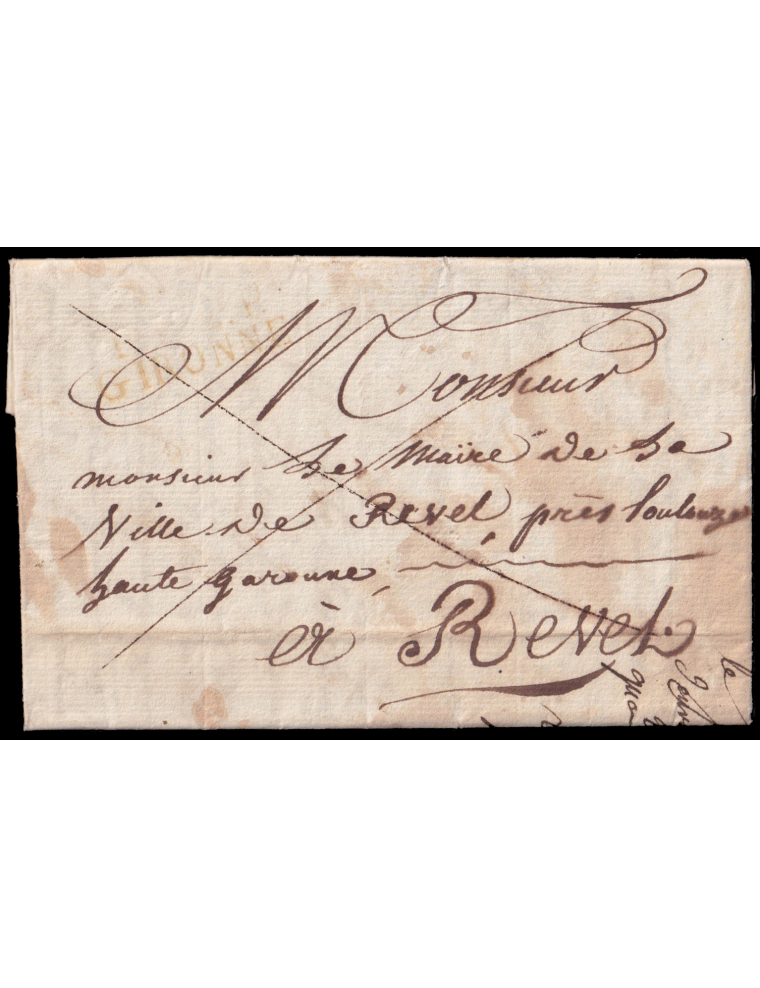 GIRONNE
Monsieur
monsieur Le Maire de La
Ville de Revel près Toulouze
haute garonne,
à Revel.
le